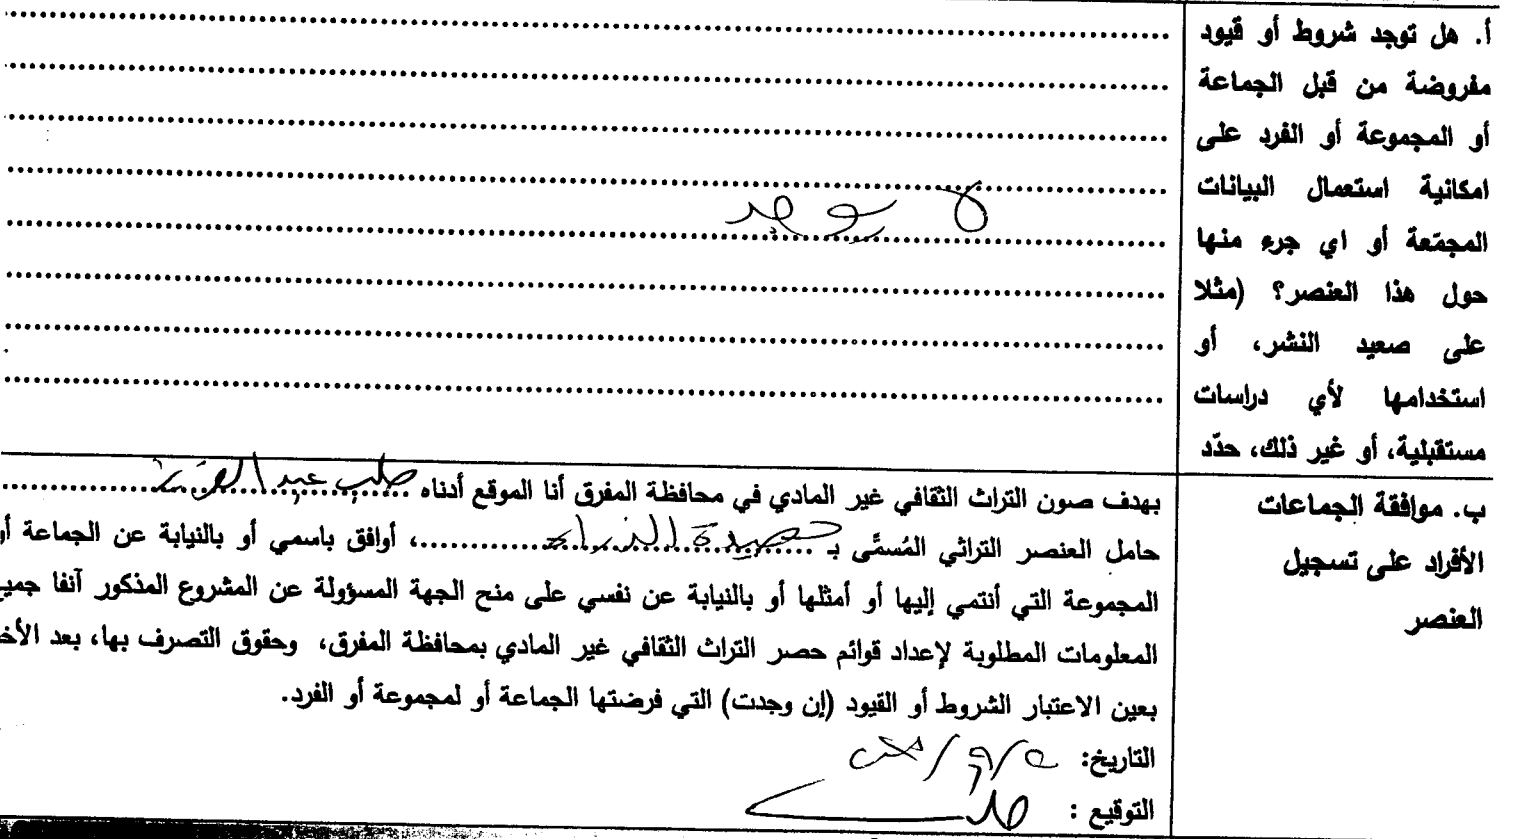 أ. هل توجد شروط أو قيود
مفروضة من قبل الجماعة
أو المجموعة أو الفرد على
امكانية استعمال البيانات
المجمّعة أو اي جرء منها
حول هذا العنصر؟ (مثلا
على صعيد النشر، أو
استخدامها لأي دراسات
مستقبلية، أو غير ذلك، حدّد
لا يوجد
ب. موافقة الجماعات
الأفراد على تسجيل
العنصر
بهدف صون التراث الثقافي غير المادي في محافظة المفرق أنا الموقع أدناه طلب عبد
حامل العنصر التراثي المُسمَّى بـ ، أوافق باسمي أو بالنيابة عن الجماعة أو
المجموعة التي أنتمي إليها أو أمثلها أو بالنيابة عن نفسي على منح الجهة المسؤولة عن المشروع المذكور آنفا جميع
المعلومات المطلوبة لإعداد قوائم حصر التراث الثقافي غير المادي بمحافظة المفرق، وحقوق التصرف بها، بعد الأخذ
بعين الاعتبار الشروط أو القيود (إن وجدت) التي فرضتها الجماعة أو لمجموعة أو الفرد.
التاريخ:
التوقيع :